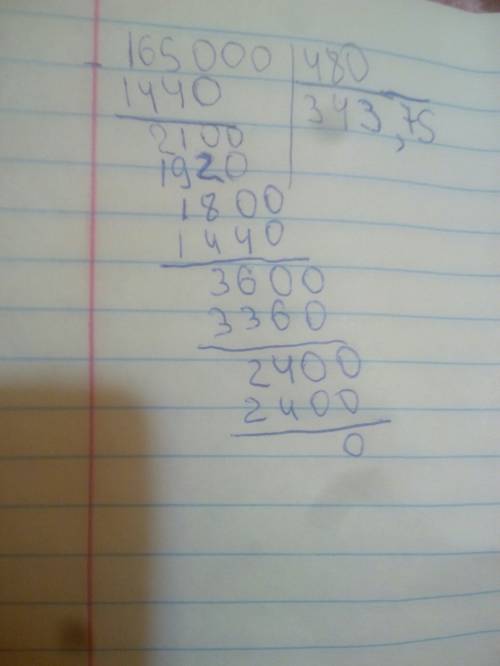 - 165000 | 480
1440 343,75
2100
1920
1800
1440
3600
3360
2400
2400
0